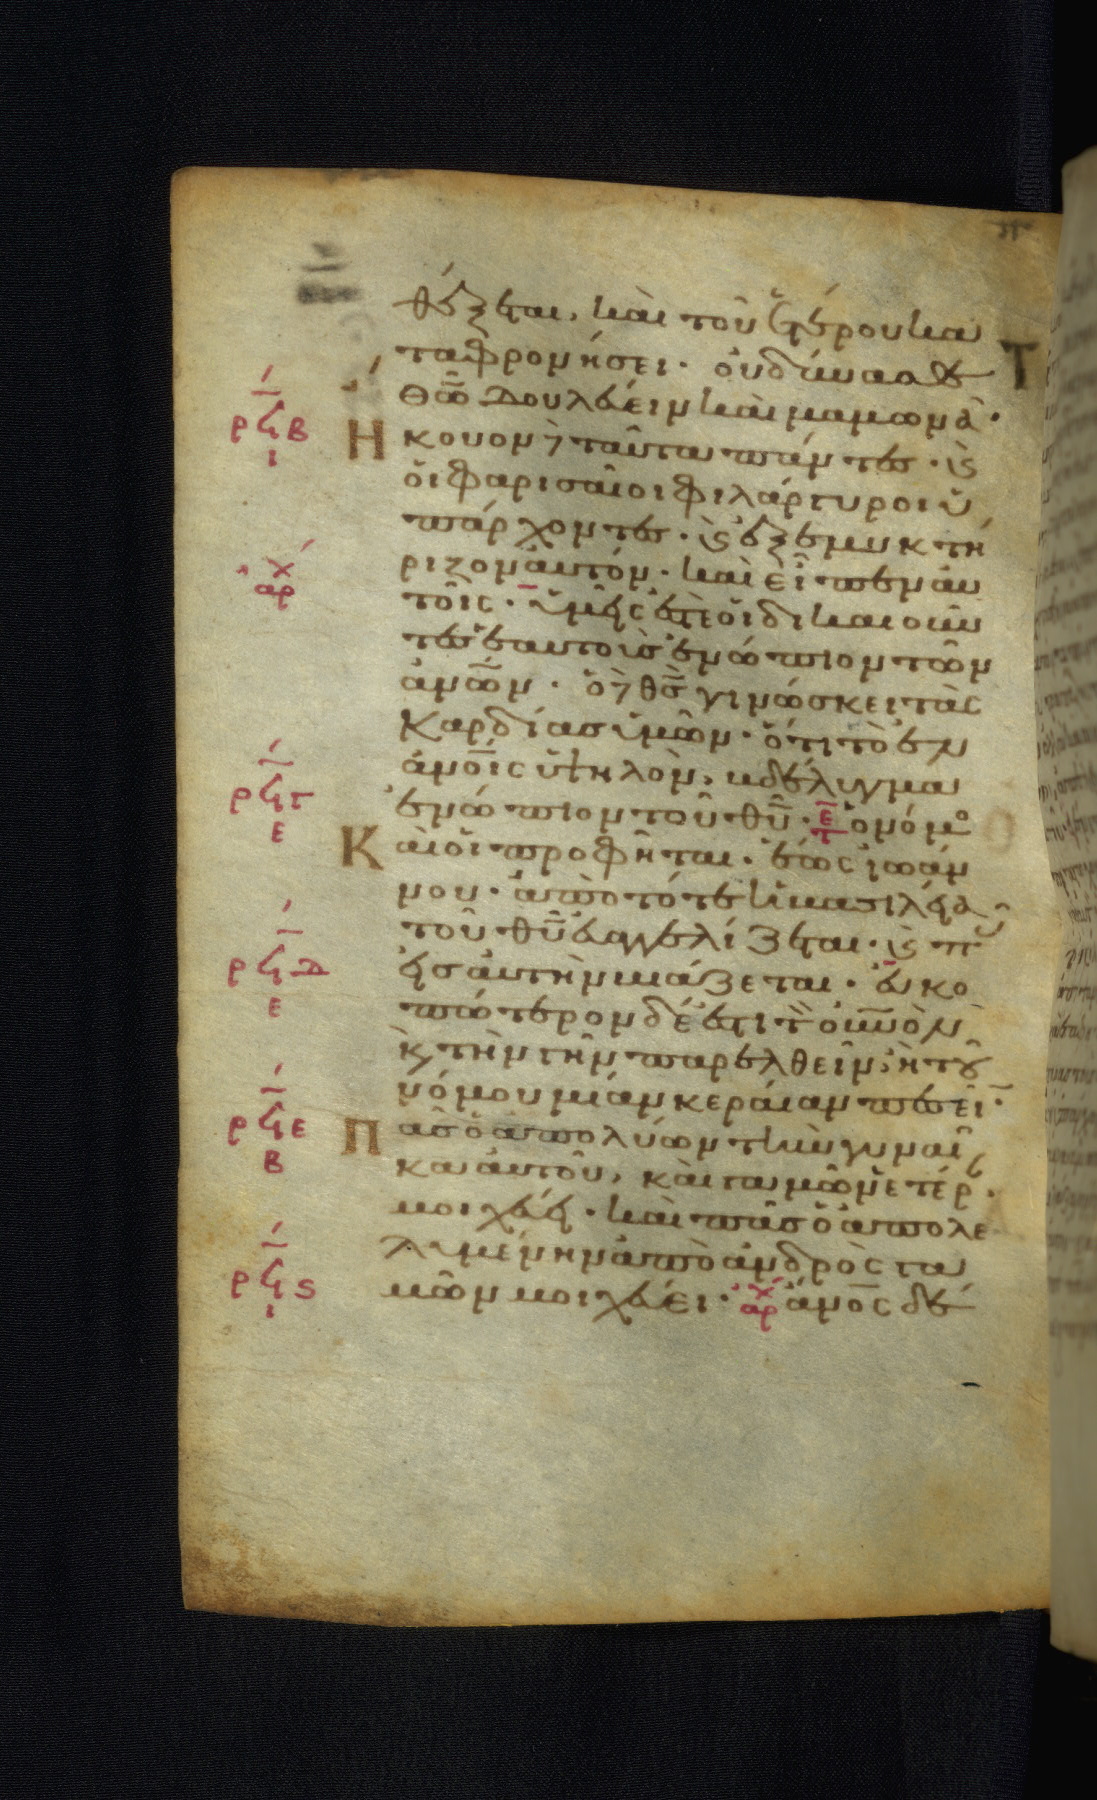 θέξεται, καὶ τοῦ ἑτέρου κα
ταφρονήσει· οὐ δύνασθε
θ͞ω δουλεύειν καὶ μαμωνᾶ·
ρϟβ ι Ἤκουον δὲ ταῦτα πάντες· κ̀
οἱ φαρισαῖοι φιλάργυροι ὑ
πάρχοντες· κ̀ ἐξεμυκτή
ριζον αὐτόν· καὶ εἶπεν αὐ
αρχ τοῖς· ὑμεῖς ἐστὲ οἱ δικαιοῦν
τες ἑαυτοὺς ἐνώπιον τῶν
α͞νων· ὁ δὲ θ͞ς γινώσκει τὰς
καρδίας ὑμῶν· ὅτι τὸ ἐν
α͞νοις ὑψηλὸν, βδέλυγμα
ρϟγ ε ἐνώπιον τοῦ θ͞υ· τε ὁ νόμο
Καὶ οἱ προφῆται· ἕως ἰωάν
νου· ἀπὸ τότε ἡ βασιλεία
τοῦ θ͞υ εὐαγγελίζεται· κ̀ π
ρϟδ ε εἰς αὐτὴν βιάζεται· εὐκο
πώτερον δέ ἐστι τὸν ο͞υνὸν
κ̀ τὴν γῆν παρελθεῖν· ἢ τοῦ
νόμου μίαν κεραίαν πεσεῖν·
ρϟε β Πᾶς ὁ ἀπολύων τὴν γυναῖ
κα αὐτοῦ, καὶ γαμῶν ἑτέρ·
μοιχεύει· καὶ πᾶς ὁ ἀπολε
λυμένην ἀπὸ ἀνδρὸς γα
ρϟς ι μῶν μοιχεύει· αρχ α͞νος δέ